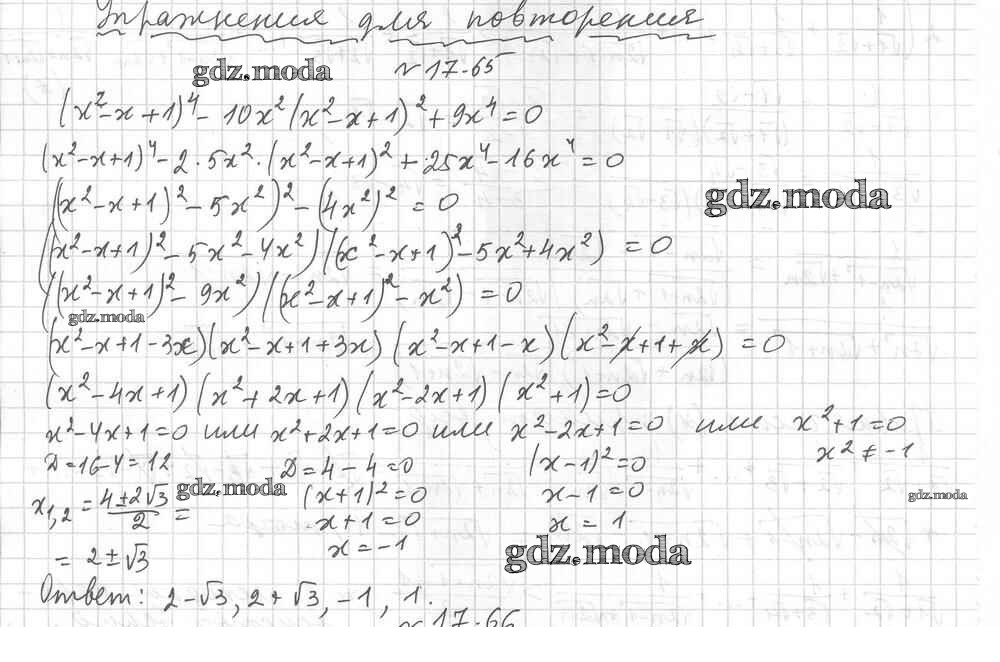 Упражнения для повторения
gdz.moda
№17.65
(x²-x+1)⁴-10x²(x²-x+1)²+9x⁴=0
(x²-x+1)⁴-2·5x²·(x²-x+1)²+25x⁴-16x⁴=0
((x²-x+1)²-5x²)²-(4x²)²=0
gdz.moda
((x²-x+1)²-5x²-4x²)((x²-x+1)²-5x²+4x²)=0
((x²-x+1)²-9x²)((x²-x+1)²-x²)=0
gdz.moda
(x²-x+1-3x)(x²-x+1+3x)(x²-x+1-x)(x²-x+1+x)=0
(x²-4x+1)(x²+2x+1)(x²-2x+1)(x²+1)=0
x²-4x+1=0 или x²+2x+1=0 или x²-2x+1=0 или x²+1=0
Д=16-4=12 Д=4-4=0 (x-1)²=0 x²≠-1
x₁,₂=(4±2√3)/2= (x+1)²=0 x-1=0
gdz.moda
gdz.moda
x+1=0 x=1
=2±√3 x=-1
gdz.moda
Ответ: 2-√3, 2+√3, -1, 1.
№17.66